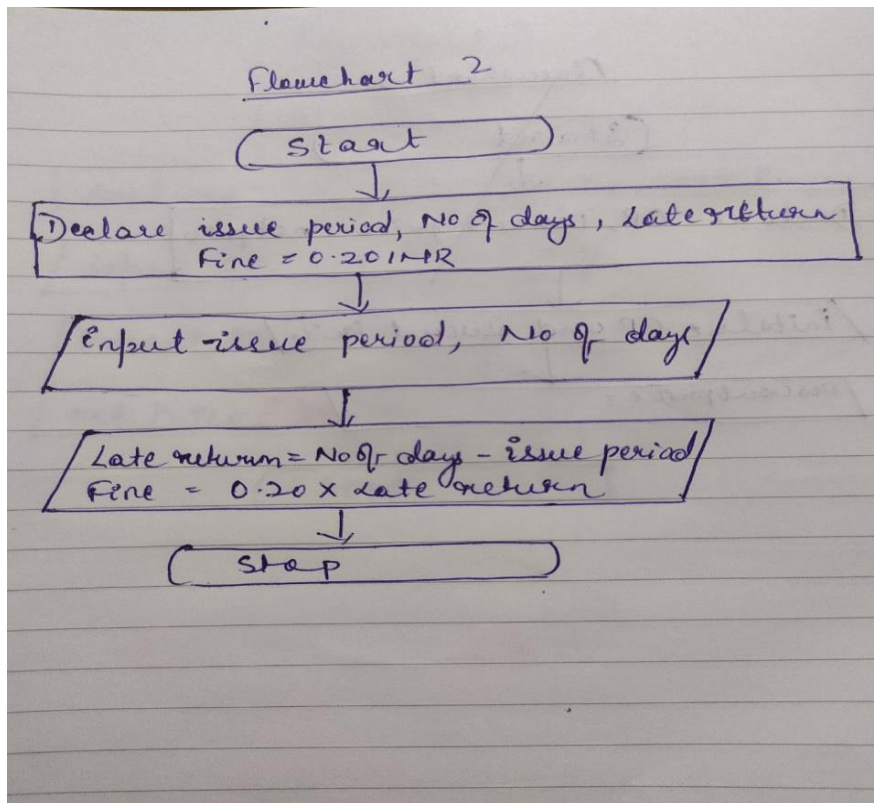 Flowchart 2
Start
Declare issue period, No of days, Late return
Fine = 0.20 INR
input issue period, No of days
Late return = No of days - issue period
Fine = 0.20 x Late return
Stop